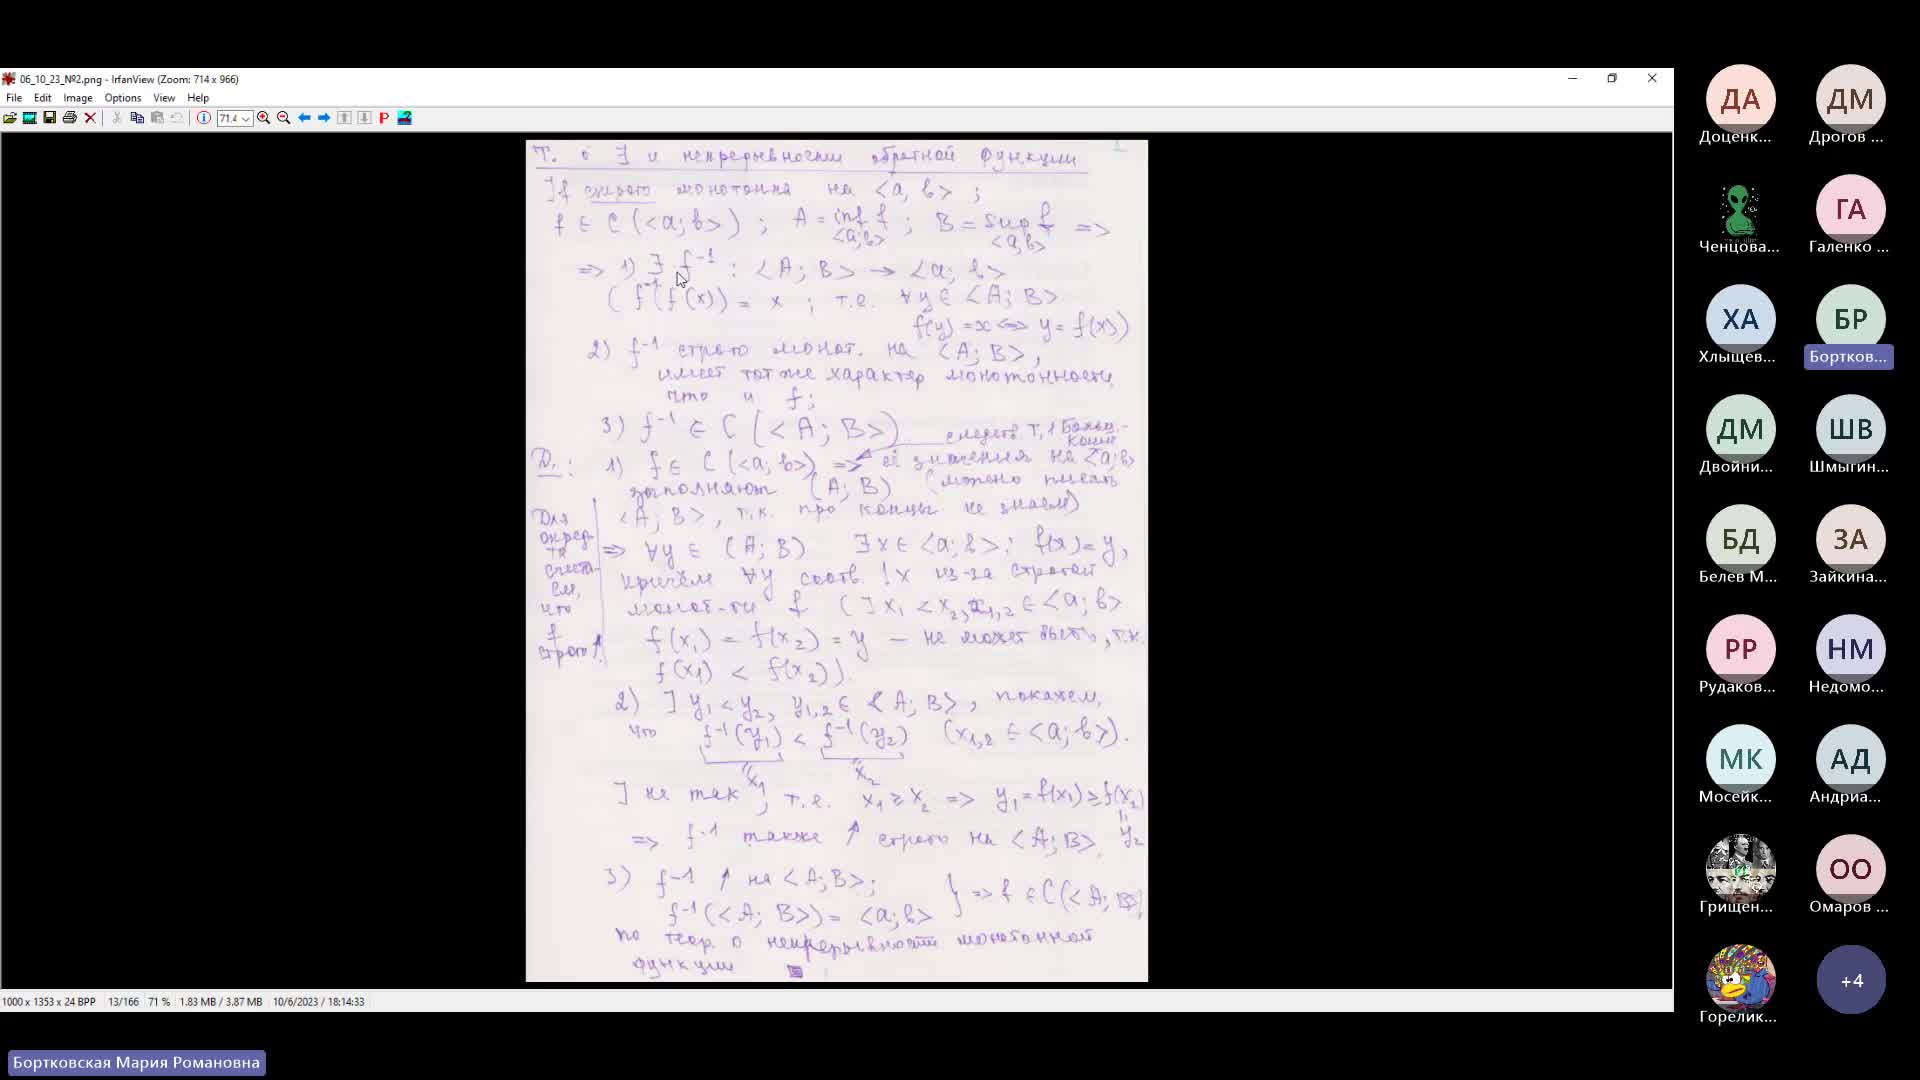 06_10_23_№2.png - IrfanView (Zoom: 714 x 966)
File Edit Image Options View Help
71.4
Т. о ∃ и непрерывности обратной функции
] f строго монотонна на <a, b> ;
f ∈ C (<a; b>) ; A = inf f ; B = sup f =>
<a;b> <a;b>
=> 1) ∃ f⁻¹ : <A; B> → <a; b>
( f⁻¹(f(x)) = x ; т.е. ∀y ∈ <A; B>
f(y) = x <=> y = f(x))
2) f⁻¹ строго монот. на <A; B>,
имеет тот же характер монотонности,
что и f;
3) f⁻¹ ∈ C (<A; B>)
следств. т. 1 Больц.-
Коши
Д.: 1) f ∈ C (<a; b>) => её значения на <a; b>
заполняют (A; B) (можно писать
<A; B>, т.к. про концы не знаем)
Для
опред-
ти
счита-
ем,
что
f
строго ↑.
=> ∀y ∈ (A; B) ∃ x ∈ <a; b>: f(x) = y,
причём ∀y соотв. ! x из-за строгой
монот-ти f (] x₁ < x₂, x₁,₂ ∈ <a; b>
f(x₁) = f(x₂) = y — не может быть, т.к.
f(x₁) < f(x₂)).
2) ] y₁ < y₂, y₁,₂ ∈ <A; B>, покажем,
что f⁻¹(y₁) < f⁻¹(y₂) (x₁,₂ ∈ <a; b>).
" x₁ " x₂
] не так, т.е. x₁ ≥ x₂ => y₁ = f(x₁) ≥ f(x₂)
"
y₂
=> f⁻¹ также ↑ строго на <A; B>.
3) f⁻¹ ↑ на <A; B>;
f⁻¹(<A; B>) = <a; b> } => f ∈ C(<A; B>)
по теор. о непрерывности монотонной
функции
1000 x 1353 x 24 BPP 13/166 71 % 1.83 MB / 3.87 MB 10/6/2023 / 18:14:33
Бортковская Мария Романовна
ДА ДМ
Доценк... Дрогов ...
ГА
Ченцова... Галенко ...
ХА БР
Хлыщев... Бортков...
ДМ ШВ
Двойни... Шмыгин...
БД ЗА
Белев М... Зайкина...
РР НМ
Рудаков... Недомо...
МК АД
Мосейк... Андриа...
ОО
Грищен... Омаров ...
+4
Горелик...